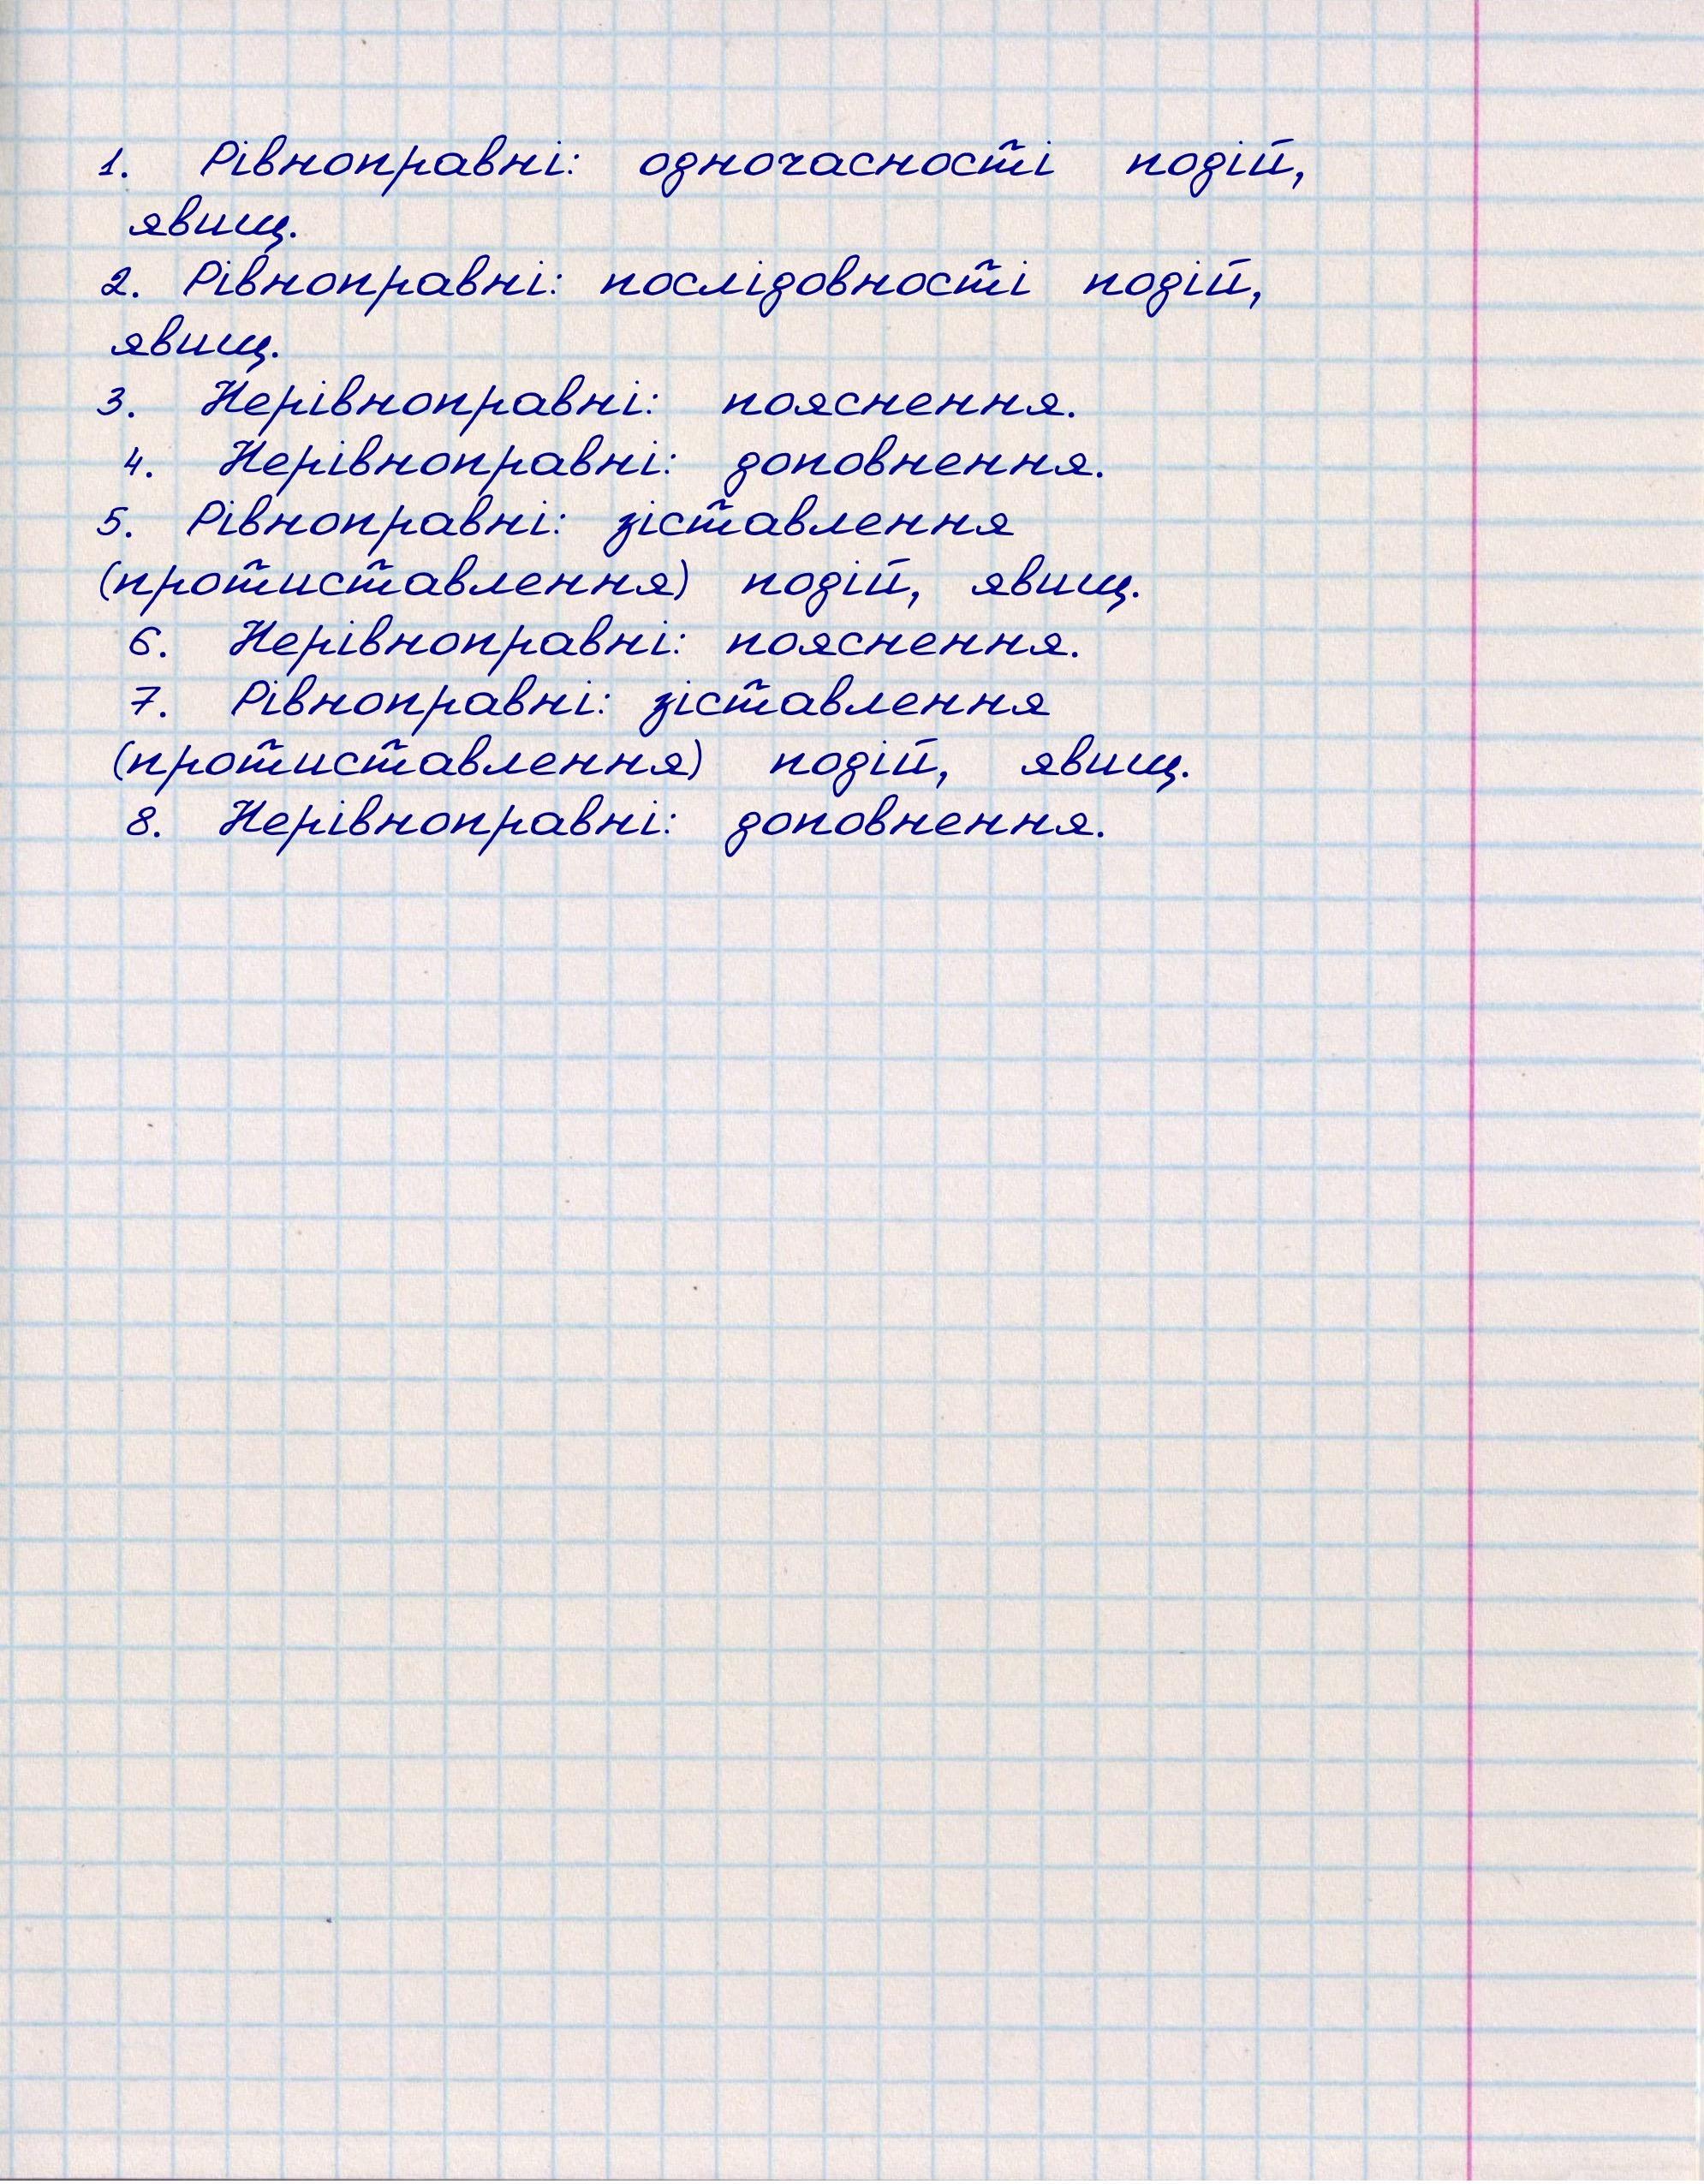 1. Рівноправні: одночасності подій,
явищ.
2. Рівноправні: послідовності подій,
явищ.
3. Нерівноправні: пояснення.
4. Нерівноправні: доповнення.
5. Рівноправні: зіставлення
(протиставлення) подій, явищ.
6. Нерівноправні: пояснення.
7. Рівноправні: зіставлення
(протиставлення) подій, явищ.
8. Нерівноправні: доповнення.